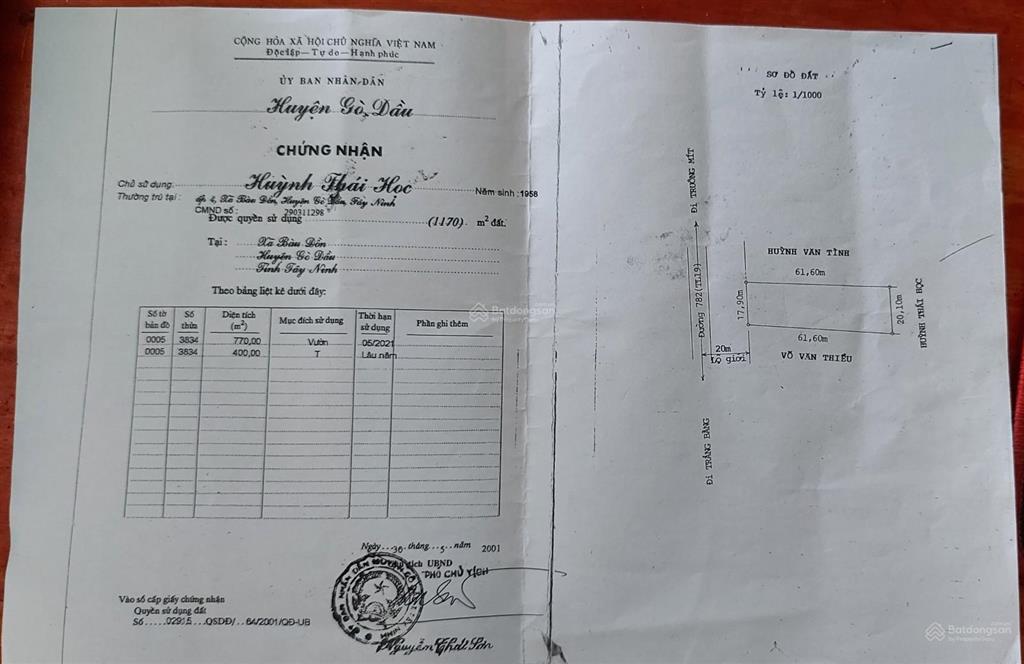 CỘNG HÒA XÃ HỘI CHỦ NGHĨA VIỆT NAM
Độc lập - Tự do - Hạnh phúc
ỦY BAN NHÂN DÂN
Huyện Gò Dầu
CHỨNG NHẬN
Chủ sử dụng: Huỳnh Thái Học Năm sinh: 1958
Thường trú tại: ấp 4, Xã Bàu Đồn, Huyện Gò Dầu, Tây Ninh
CMND số: 290311298
Được quyền sử dụng (1170) m² đất.
Tại: Xã Bàu Đồn
Huyện Gò Dầu
Tỉnh Tây Ninh
Theo bảng liệt kê dưới đây:
Số tờ bản đồ Số thửa Diện tích (m²) Mục đích sử dụng Thời hạn sử dụng Phần ghi thêm
0005 3834 770,00 Vườn 05/2021
0005 3834 400,00 T Lâu năm
Ngày 30 tháng 5 năm 2001
tịch UBND
PHÓ CHỦ TỊCH
Nguyễn Sơn
Vào sổ cấp giấy chứng nhận
Quyền sử dụng đất
Số 02915 QSDĐ/ 64/2001/QĐ-UB
SƠ ĐỒ ĐẤT
Tỷ lệ: 1/1000
ĐI TRƯỜNG MÍT
Đường 782(TL19)
ĐI TRẢNG BÀNG
20m
Lộ giới
HUỲNH VĂN TÌNH
61,60m
17,90m
20,10m
HUỲNH THÁI HỌC
61,60m
VÕ VĂN THIỂU
Batdongsan
by PropertyGuru
Batdongsan
by PropertyGuru